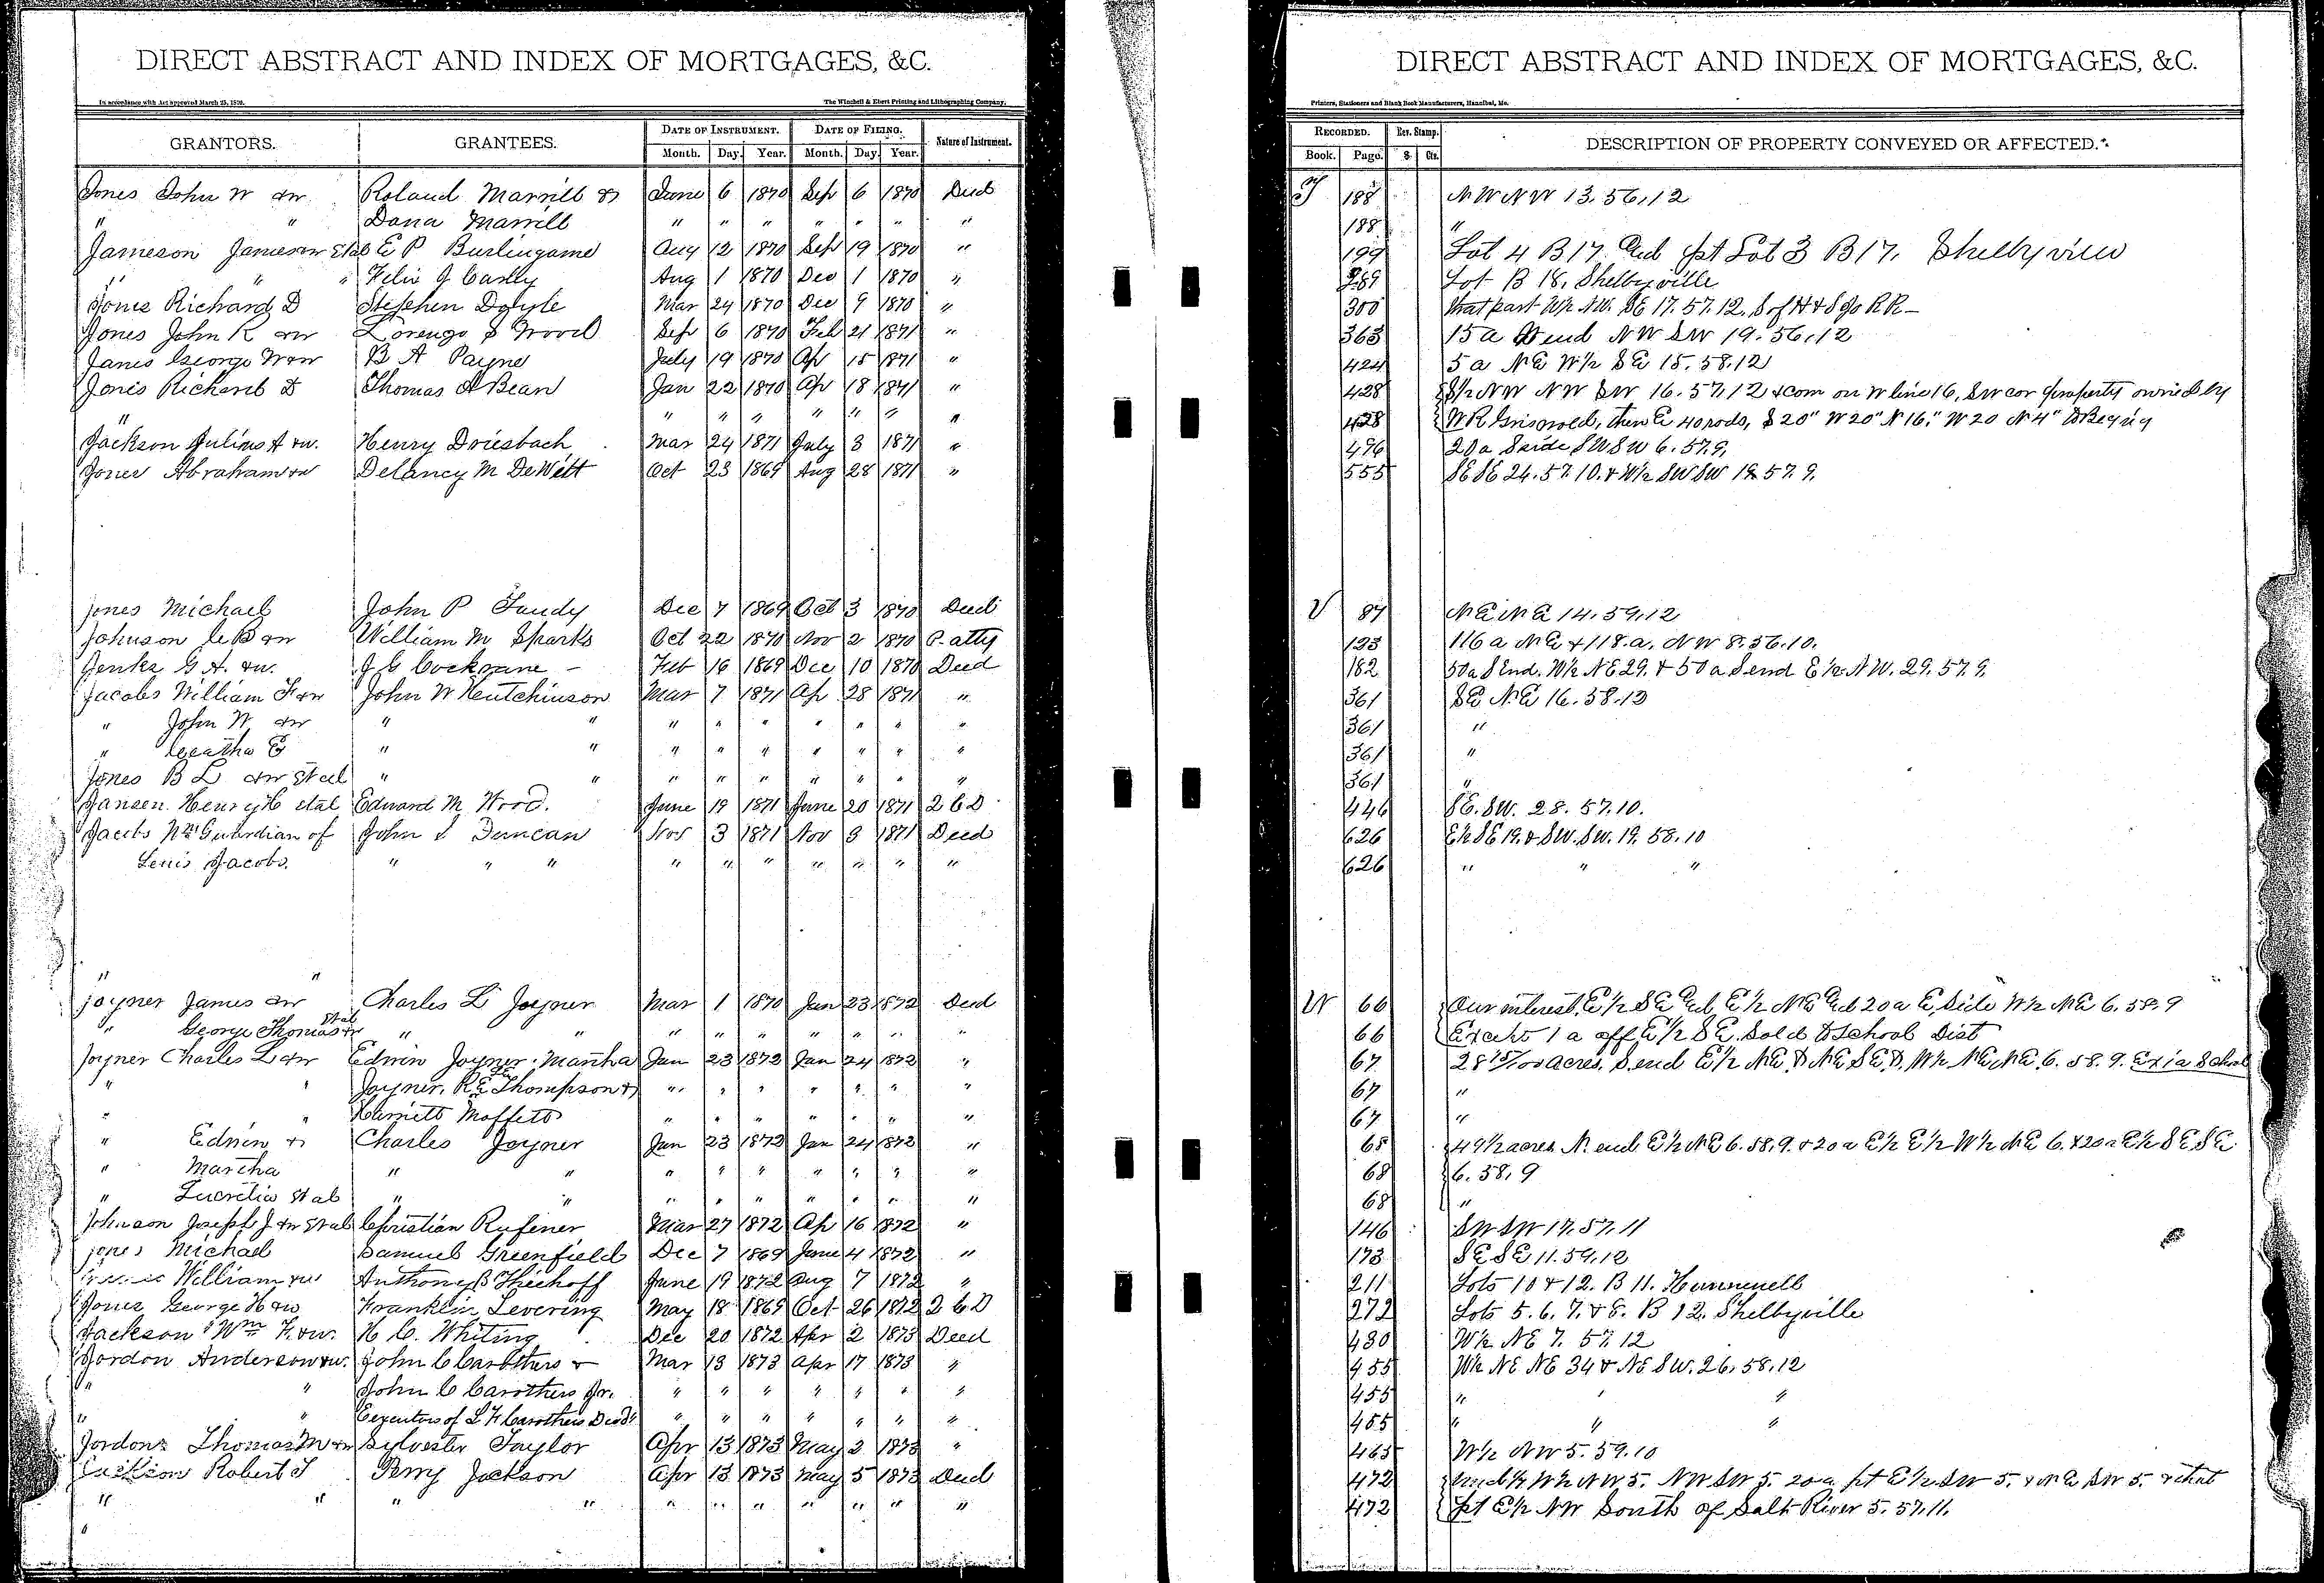 DIRECT ABSTRACT AND INDEX OF MORTGAGES, &C.
In accordance with Act approved March 25, 1870. The Winchell & Ebert Printing and Lithographing Company,
GRANTORS. GRANTEES. DATE OF INSTRUMENT. DATE OF FILING. Nature of Instrument.
Month. Day. Year. Month. Day. Year.
Jones John W &w Roland Marrill & June 6 1870 Sep 6 1870 Deed
" " Dana Marrill " " " " " " "
Jameson Jameson et al E P Burlingame Aug 12 1870 Sep 19 1870 "
" " " Felix G Aug 1 1870 Dec 1 1870 "
Jones Richard D Stephen Doyle Mar 24 1870 Dec 9 1870 "
Jones John R &w Lorenzo D Wood Sep 6 1870 Feb 21 1871 "
Janes George W &w B A Payne July 19 1870 Ap 15 1871 "
Jones Richard D Thomas A Bean Jan 22 1870 Ap 18 1871 "
" " " " " " " "
Jackson Julius A &w. Henry Driesbach Mar 24 1871 July 3 1871 "
Jones Abraham &w Delancy M DeWitt Oct 23 1869 Aug 28 1871 "
Jones Michael John P Tandy Dec 7 1869 Oct 3 1870 Deed
Johnson C B &w William M Sparks Oct 22 1870 Nov 2 1870 P. atty
Jenks G A. &w. J G Cockrane Feb 16 1869 Dec 10 1870 Deed
Jacobs William F &w John W Hutchinson Mar 7 1871 Ap 28 1871 "
" John W &w " " " " " " " " "
" E " " " " " " " " "
Jones B L &w et al " " " " " " " " "
Jansen Henry H et al Edward M Wood. June 19 1871 June 20 1871 2 C D
Jacobs Wm Guardian of John S Duncan Nov 3 1871 Nov 3 1871 Deed
Lewis Jacobs. " " " " " " " " " "
" "
Joyner James &w Charles L Joyner Mar 1 1870 Jan 23 1872 Deed
" George Thomas &w et al " " " " " " " " "
Joyner Charles L &w Edwin Joyner, Martha Jan 23 1872 Jan 24 1872 "
" " Joyner, R E Thompson & " " " " " " "
" " Harriett Moffett " " " " " " "
" Edwin & Charles Joyner Jan 23 1872 Jan 24 1872 "
" Martha " " " " " " " " "
" Lucretia et al " " " " " " " " "
Johnson Joseph J &w et al Christian Rufener Mar 27 1872 Ap 16 1872 "
Jones Michael Samuel Greenfield Dec 7 1869 June 4 1872 "
William &w Anthony B Thiehoff June 19 1872 Aug 7 1872 "
Jones George H &w Franklin Levering May 18 1869 Oct 26 1872 2 C D
Jackson Wm F. &w. H C. Whiting Dec 20 1872 Apr 2 1873 Deed
Jordon Anderson &w. John C Carothers & Mar 13 1873 Apr 17 1873 "
" " John C Carothers Jr. " " " " " " "
" " Executors of L F Carothers Decd " " " " " " "
Jordon Thomas M &w Sylvester Taylor Apr 13 1873 May 2 1873 "
Jackson Robert S Perry Jackson Apr 13 1873 May 5 1873 Deed
" " " " " " " " " " "
DIRECT ABSTRACT AND INDEX OF MORTGAGES, &C.
Printers, Stationers and Blank Book Manufacturers, Hannibal, Mo.
RECORDED. Rev. Stamp. DESCRIPTION OF PROPERTY CONVEYED OR AFFECTED.
Book. Page. $ Cts.
T 188 NW NW 13. 56. 12
188 "
199 Lot 4 B 17. And pt Lot 3 B 17. Shelbyville
269 Lot B 18. Shelbyville
300 that part W½ NW. SE 17. 57. 12. S of H & St Jo RR
363 15 a W end NW SW 19. 56. 12
424 5 a NE W½ SE 15. 58. 12
428 S½ NW NW SW 16. 57. 12 & com on W line 16, SW cor property owned by
428 W R Griswold, then E 40 rods, S 20" W 20" N 16" W 20 N 4" to Beg'n'g
496 20 a S side SW SW 6. 57. 9.
555 SE SE 24. 57. 10. & W½ SW SW 19. 57. 9.
V 87 NE NE 14. 59. 12
123 116 a NE & 118. a. NW 8. 56. 10.
182 50 a S End. W½ NE 29. & 50 a S end E½ NW. 29. 57. 9.
361 SE NE 16. 58. 12
361 "
361 "
361 "
446 SE. SW. 28. 57. 10.
626 E½ SE 19. & SW. SW. 19. 58. 10
626 " " "
W 66 Our interest, E½ SE And, E½ NE And 20 a E, Side W½ NE 6. 58. 9
66 Except 1 a off E½ SE. Sold to School Dist
67 28 15/100 acres, S end E½ NE, & NE SE, & W½ NE NE 6. 58. 9. Ex 1 a School
67 "
67 "
68 49½ acres N. end E½ NE 6. 58. 9. & 20 a E½ E½ W½ NE 6. & 20 a E½ SE SE
68 6. 58. 9
68 "
146 SW SW 17. 57. 11
173 SE SE 11. 59. 12
211 Lots 10 & 12. B 11. Hunnewell
272 Lots 5. 6. 7. & 8. B 12. Shelbyville
430 W½ NE 7. 57. 12
455 W½ NE NE 34 & NE SW. 26. 58. 12
455 " " "
455 " " "
465 W½ NW 5. 59. 10
472 und ½ W½ NW 5. NW SW 5. 20 a pt E½ SW 5. & NE SW 5. & that
472 pt E½ NW South of Salt River 5. 57. 11.